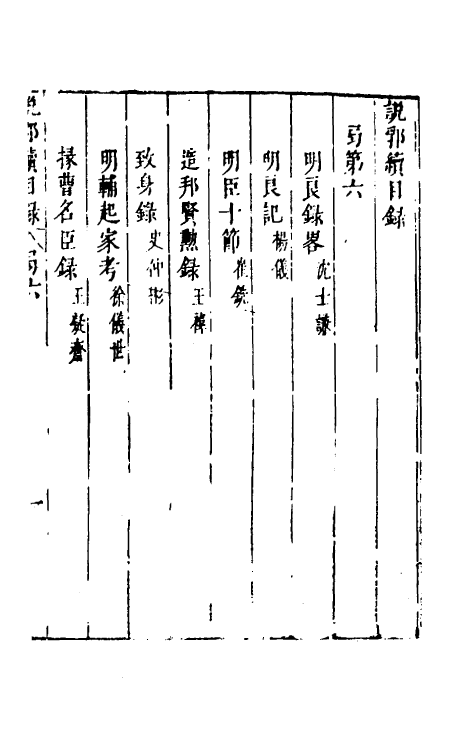 說郛續目録
弓第六
明良錄畧 沈士謙
明良記 楊儀
明臣十節 崔銑
造邦賢勲錄 王禕
致身錄 史仲彬
明輔起家考 徐儀世
掾曹名臣録 王凝齋
說郛續目録 弓六 一